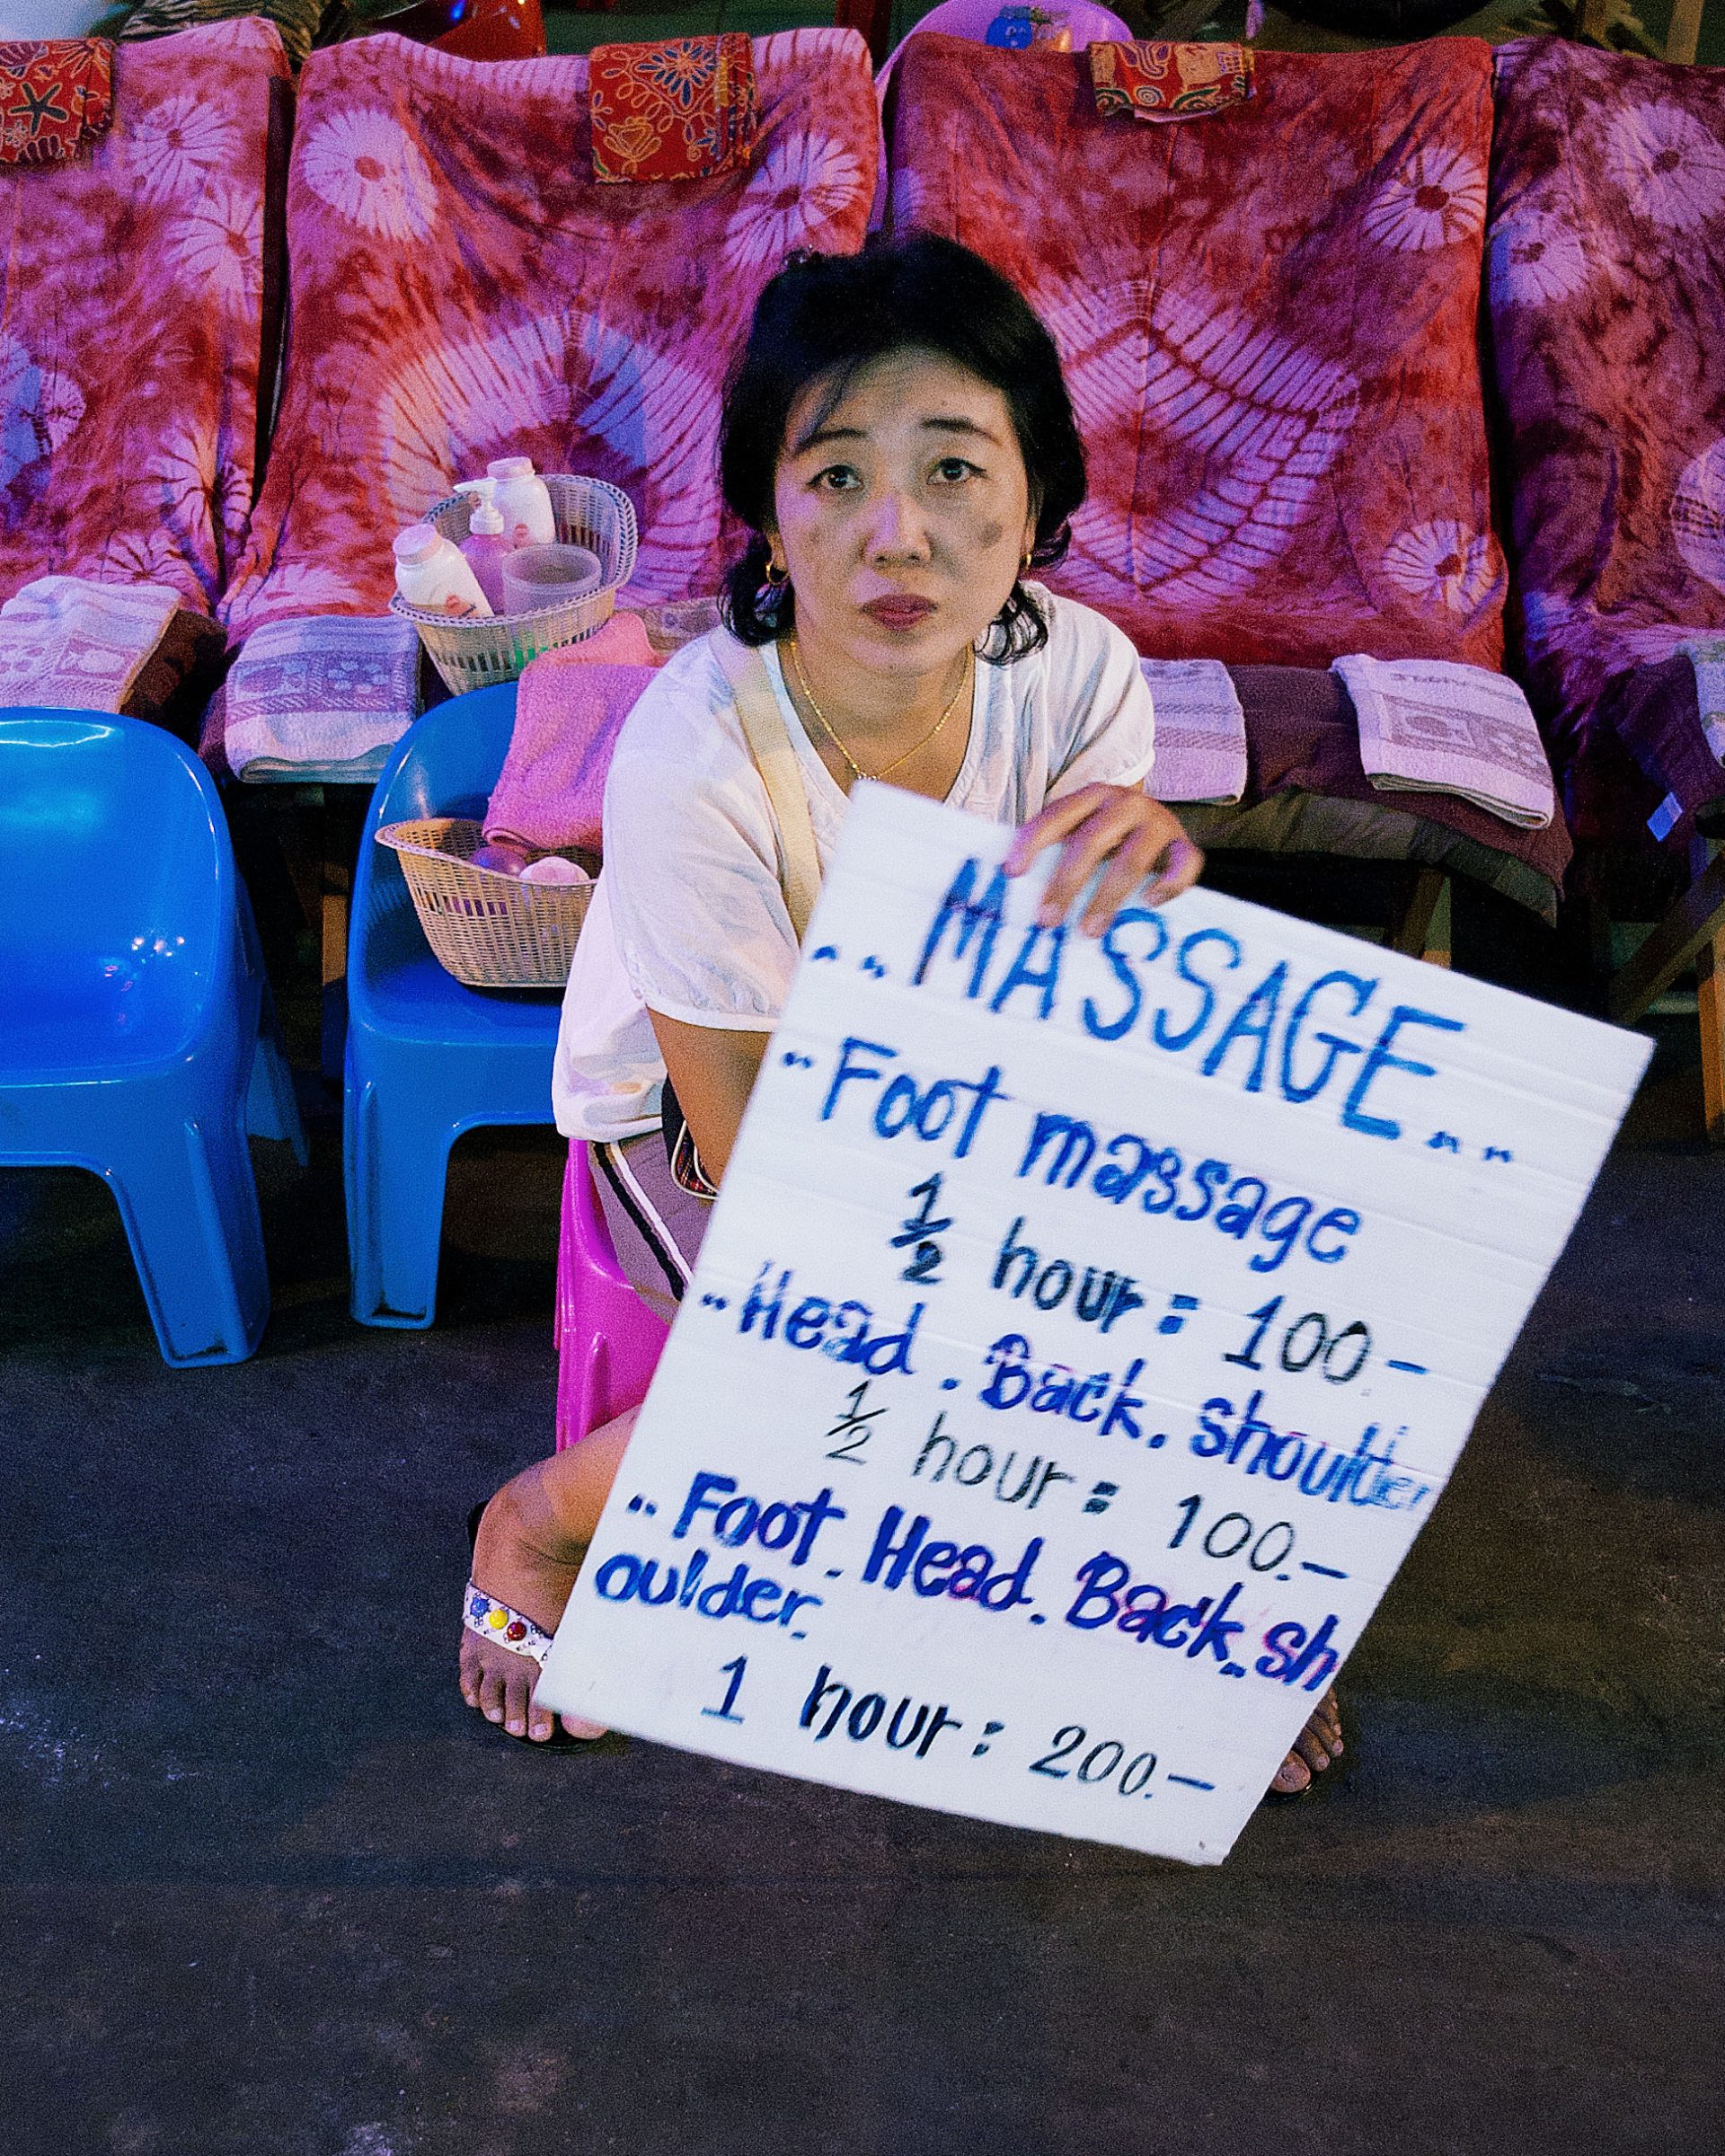 "MASSAGE"
"Foot massage
1/2 hour: 100.-
"Head. Back. shoulder
1/2 hour: 100.-
"Foot. Head. Back. sh
oulder.
1 hour: 200.-